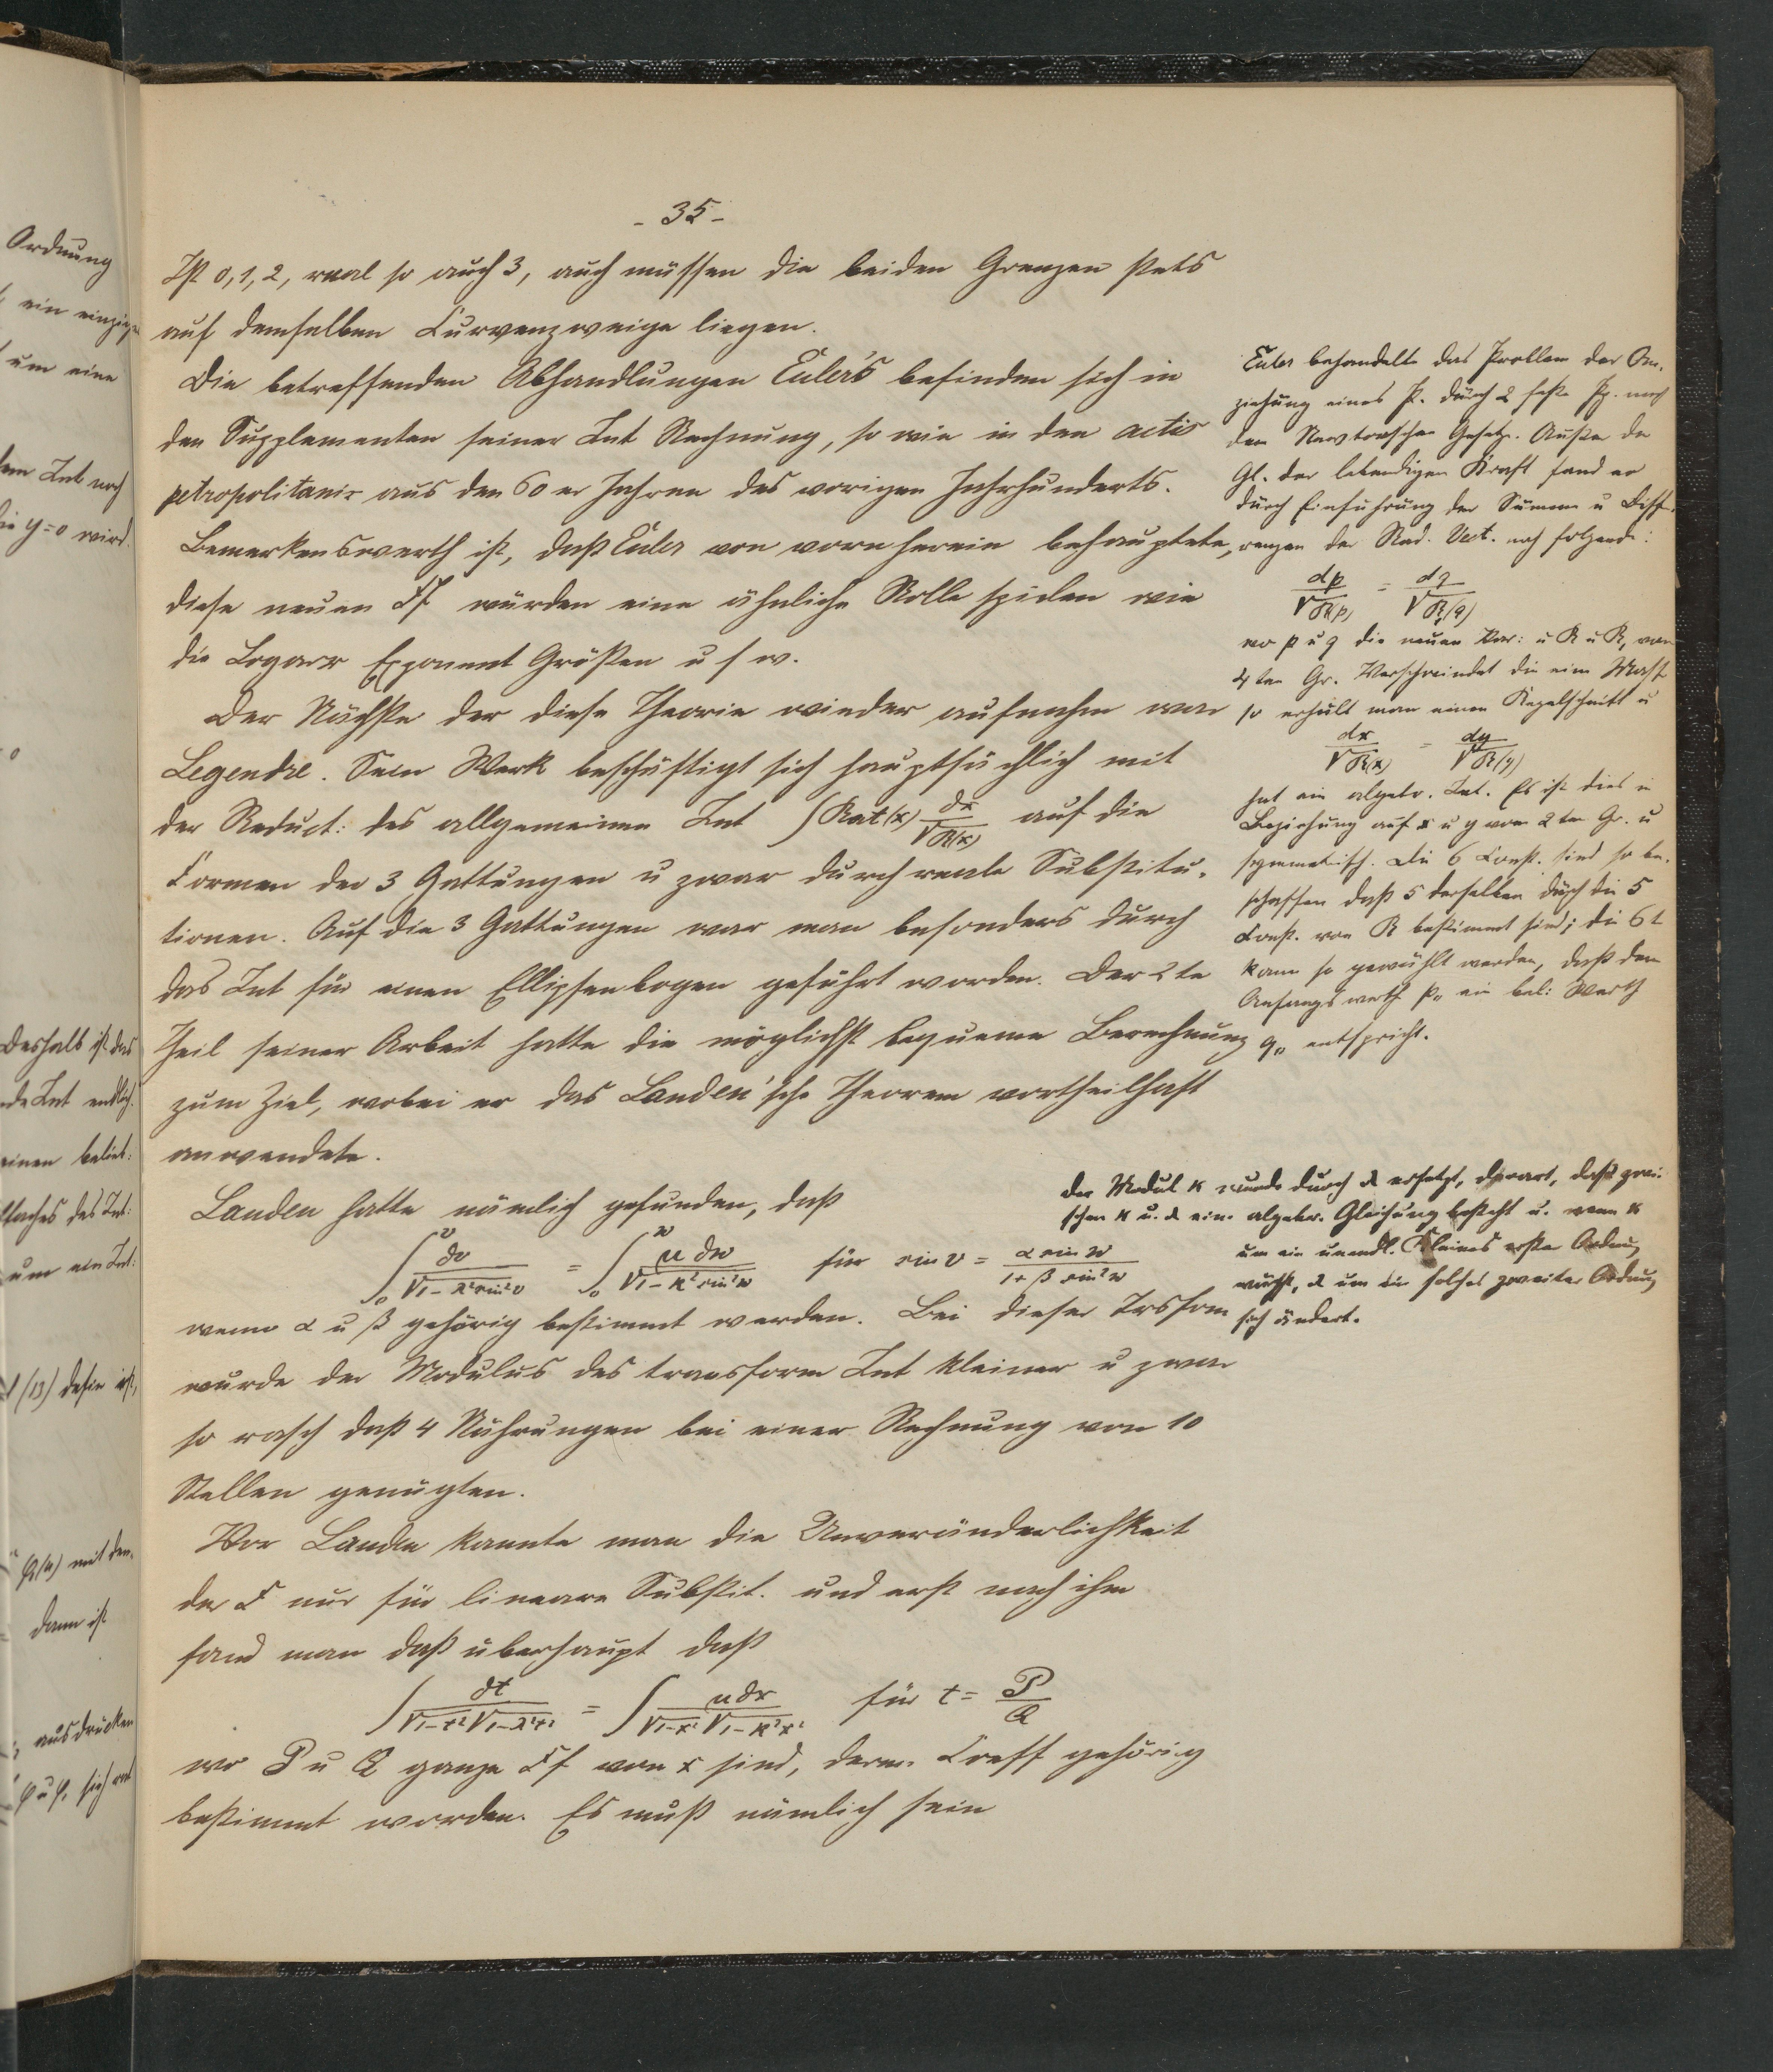 - 35 -
Ist 0, 1, 2, reel so auch 3, auch müssen die beiden Grenzen stets
auf demselben Curvenzweige liegen.
Die betreffenden Abhandlungen Euler's befinden sich in
den Supplementen seiner Int Rechnung, so wie in den actis
petropolitanis aus den 60er Jahren des vorigen Jahrhunderts.
Bemerkenswerth ist, daß Euler von vorn herein behauptete,
diese neuen Ff würden eine ähnliche Rolle spielen wie
die Exponent Größen u s w.
Der Nächste der diese Theorie wieder aufnahm war
Legendre. Sein Werk beschäftigt sich hauptsächlich mit
der Reduct: des allgemeinen Int ∫ Rat(x) dx/√R(x) auf die
Formen der 3 Gattungen u zwar durch reale Substitu-
tionen. Auf die 3 Gattungen war man besonders durch
das Int für einen Ellipsenbogen geführt worden. Der 2te
Theil seiner Arbeit hatte die möglichst bequeme Berechnung
zum Ziel, wobei er das Landen'sche Theorem vortheilhaft
anwendete.
Landen hatte nämlich gefunden, daß
∫₀ᵛ dv/√(1-λ²sin²v) = ∫₀ʷ μ dw/√(1-k²sin²w) für sin v = α sin w/(1+β sin²w)
wenn α u β gehörig bestimmt werden. Bei dieser Trsform
wurde der Modulus des transform Int kleiner u zwar
so rasch daß 4 Nährungen bei einer Rechnung von 10
Stellen genügten.
Vor Landen kannte man die Unveränderlichkeit
der F nur für lineare Substit. und erst nach ihm
fand man daß überhaupt daß
∫ dt/(√1-t² √1-λ²t²) = ∫ μ dx/(√1-x² √1-k²x²) für t = P/Q
wo P u Q ganze Ff von x sind, deren Coeff gehörig
bestimmt worden. Es muß nämlich sein
Euler behandelte das Problem der An-
ziehung eines P. durch 2 feste P. nach
dem Newtonschen Gesetz. Außer der
Gl. der lebendigen Kraft fand er
durch Einführung der Summe u Diffe-
renzen der Rad. Vect. noch folgende:
dp/√R(p) = dq/√R₁(q)
wo p u q die neuen Var: u R u R₁ vom
4ten Gr. Verschwindet die eine Masse
so erhält man einen Kegelschnitt u
dx/√R(x) = dy/√R(y)
hat ein algebr. Int. Es ist dies in
Beziehung auf x u y vom 2ten Gr. u
symmetrisch. Die 6 Const. sind so be-
schaffen daß 5 derselben durch die 5
Const. von R bestimmt sind; die 6t
kann so gewählt werden, daß dem
Anfangswerth p₀ ein bel: Werth
q₀ entspricht.
der Modul k wurde durch λ ersetzt, derart, daß zwi-
schen k u. λ eine algebr. Gleichung besteht u. wenn k
um ein unendl. Kleines erster Ordnung
wächst, λ um ein solches zweiter Ordnung
sich ändert.
Ordnung
um eine
Int noch
y=0 wird.
Deshalb ist das
Int endlich.
einen belieb:
des Int:
um ein Int:
mit den
dann ist
ausdrücken